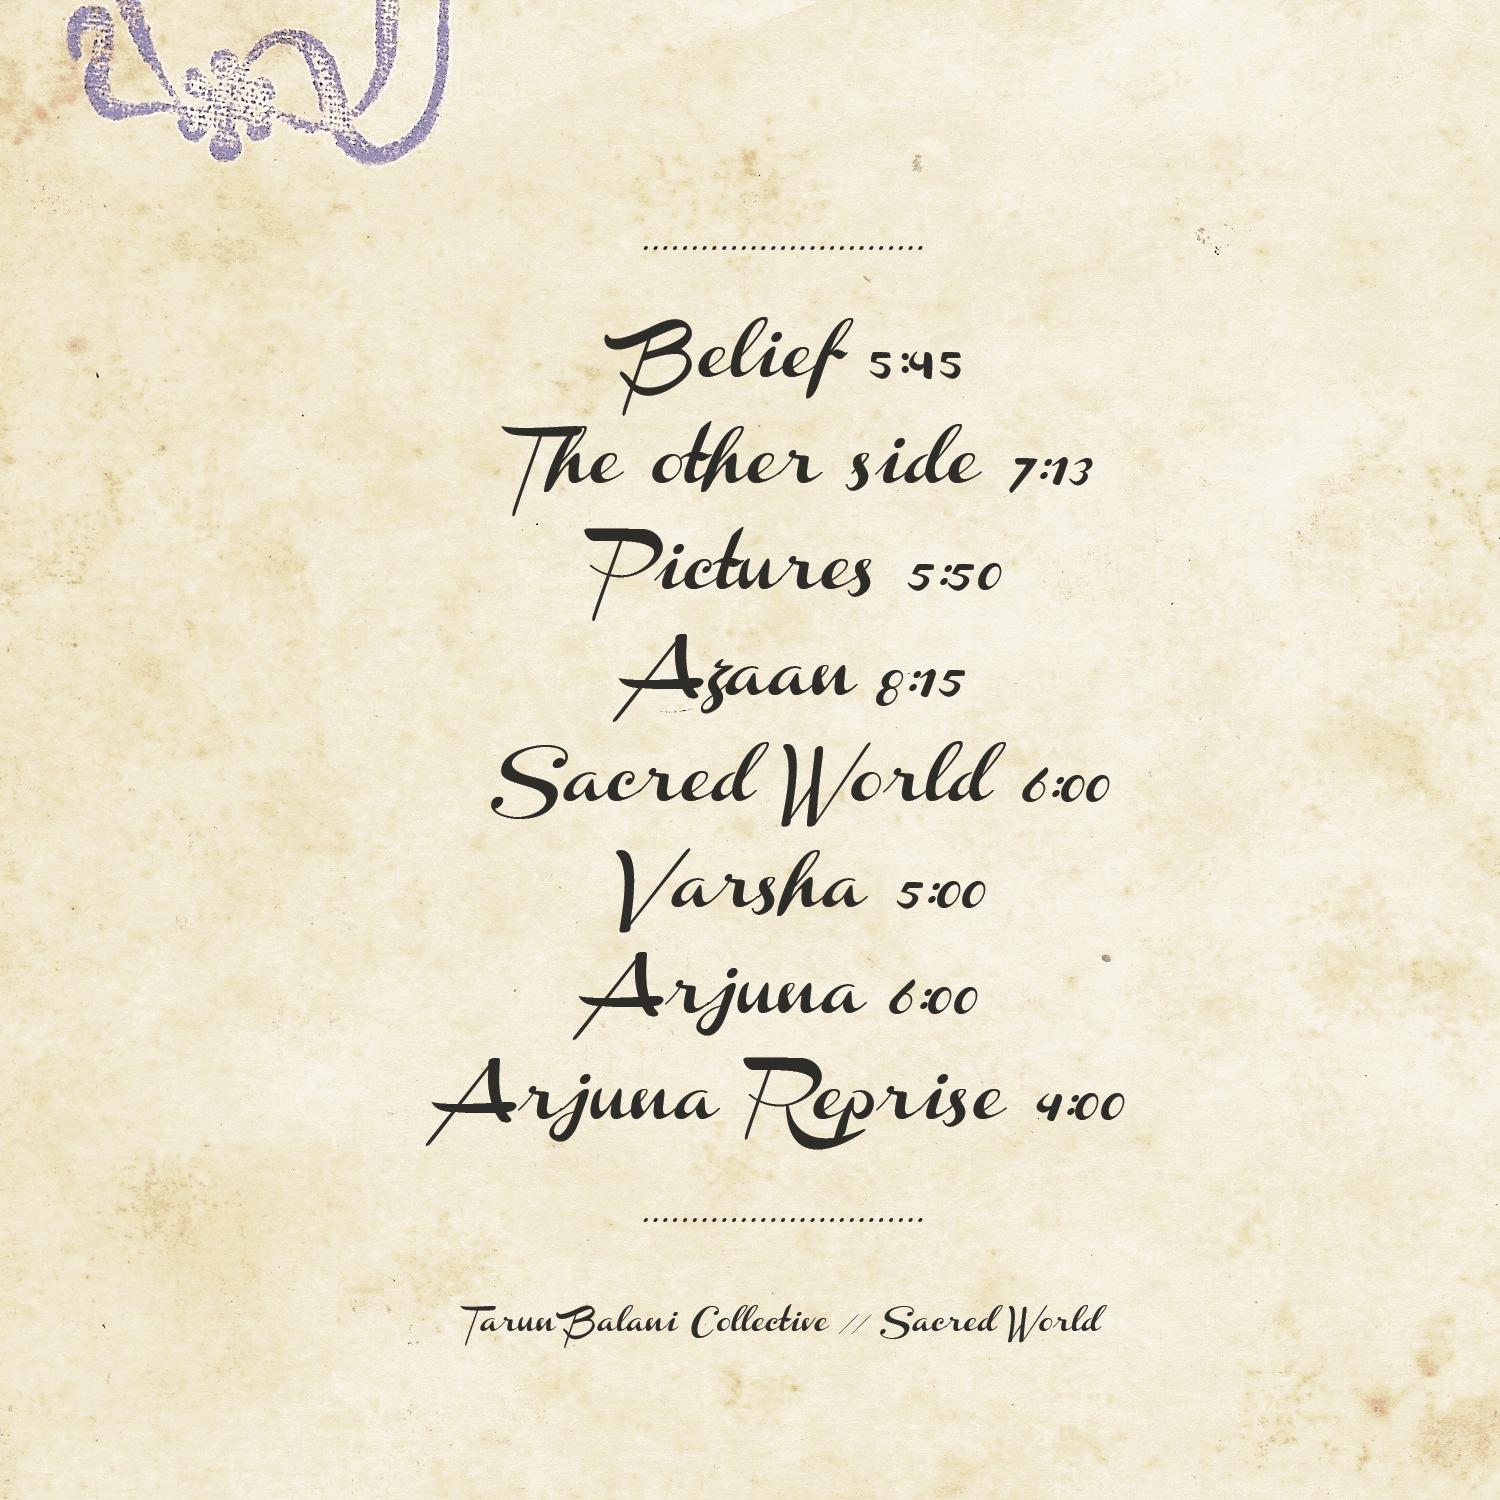 Belief 5:45
The other side 7:13
Pictures 5:50
Azaan 8:15
Sacred World 6:00
Varsha 5:00
Arjuna 6:00
Arjuna Reprise 4:00
Tarun Balani Collective // Sacred World